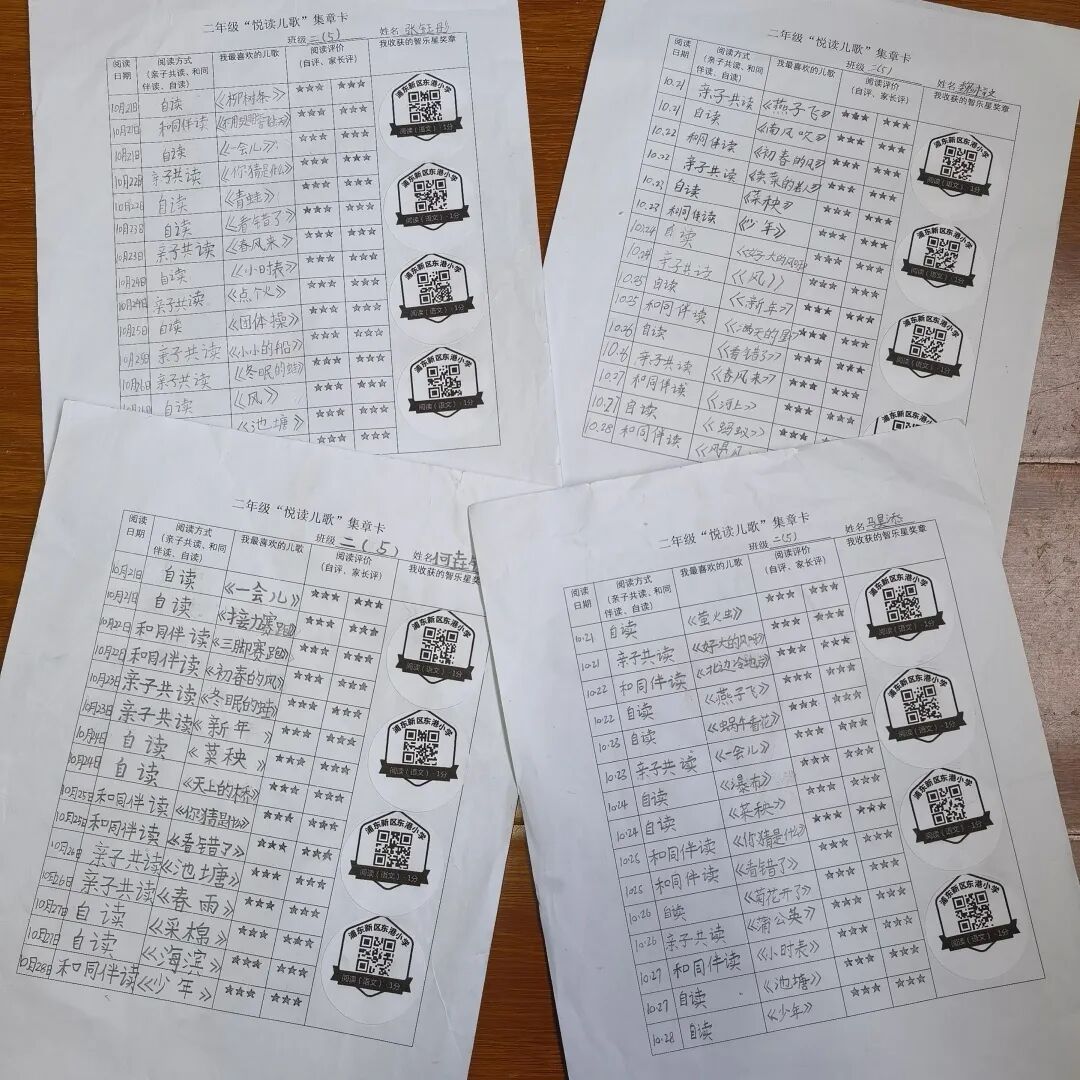 二年级“悦读儿歌”集章卡
班级 二(5) 姓名
阅读日期 阅读方式(亲子共读、和同伴读、自读) 我最喜欢的儿歌 阅读评价(自评、家长评) 我收获的智乐星奖章
10月21日 自读 《柳树条》 ☆☆☆ ☆☆☆
10月21日 和同伴读 ☆☆☆ ☆☆☆
10月21日 自读 《一会儿》 ☆☆☆ ☆☆☆
10月22日 亲子共读 《你猜是什么》 ☆☆☆ ☆☆☆
10月22日 自读 《青蛙》 ☆☆☆ ☆☆☆
10月23日 自读 《看错了》 ☆☆☆ ☆☆☆
10月23日 亲子共读 《春风来》 ☆☆☆ ☆☆☆
10月24日 自读 《小时表》 ☆☆☆ ☆☆☆
10月24日 亲子共读 《点火》 ☆☆☆ ☆☆☆
10月25日 自读 《团体操》 ☆☆☆ ☆☆☆
10月25日 亲子共读 《小小的船》 ☆☆☆ ☆☆☆
10月26日 亲子共读 《冬眠的蛙》 ☆☆☆ ☆☆☆
10月26日 自读 《风》 ☆☆☆ ☆☆☆
《池塘》 ☆☆☆ ☆☆☆
浦东新区东港小学
阅读(语文)·1分
浦东新区东港小学
阅读(语文)·1分
浦东新区东港小学
阅读(语文)·1分
浦东新区东港小学
阅读(语文)·1分
二年级“悦读儿歌”集章卡
班级 二(5) 姓名
阅读日期 阅读方式(亲子共读、和同伴读、自读) 我最喜欢的儿歌 阅读评价(自评、家长评) 我收获的智乐星奖章
10.21 亲子共读 《燕子飞》 ☆☆☆ ☆☆☆
10.21 自读 《南风吹》 ☆☆☆ ☆☆☆
10.22 和同伴读 《初春的风》 ☆☆☆ ☆☆☆
10.22 亲子共读 ☆☆☆ ☆☆☆
10.23 自读 《菜秧》 ☆☆☆ ☆☆☆
10.23 和同伴读 《少年》 ☆☆☆ ☆☆☆
10.24 自读 《好大的风呀》 ☆☆☆ ☆☆☆
10.24 亲子共读 《风》 ☆☆☆ ☆☆☆
10.25 自读 《新年》 ☆☆☆ ☆☆☆
10.25 和同伴读 《满天的星》 ☆☆☆ ☆☆☆
10.26 自读 《看错了》 ☆☆☆ ☆☆☆
10.26 亲子共读 《春风来》 ☆☆☆ ☆☆☆
10.27 和同伴读 《河上》 ☆☆☆ ☆☆☆
10.27 自读 《蚂蚁》 ☆☆☆ ☆☆☆
10.28 和同伴读
浦东新区东港小学
阅读(语文)·1分
浦东新区东港小学
阅读(语文)·1分
浦东新区东港小学
阅读(语文)·1分
浦东新区东港小学
二年级“悦读儿歌”集章卡
班级 二(5) 姓名 何垚
阅读日期 阅读方式(亲子共读、和同伴读、自读) 我最喜欢的儿歌 阅读评价(自评、家长评) 我收获的智乐星奖章
10月21日 自读 《一会儿》 ☆☆☆ ☆☆☆
10月21日 自读 《接力赛跑》 ☆☆☆ ☆☆☆
10月22日 和同伴读 《三脚赛跑》 ☆☆☆ ☆☆☆
10月22日 和同伴读 《初春的风》 ☆☆☆ ☆☆☆
10月23日 亲子共读 《冬眠的蛙》 ☆☆☆ ☆☆☆
10月23日 亲子共读 《新年》 ☆☆☆ ☆☆☆
10月24日 自读 《菜秧》 ☆☆☆ ☆☆☆
10月24日 自读 《天上的桥》 ☆☆☆ ☆☆☆
10月25日 和同伴读 《你猜是什么》 ☆☆☆ ☆☆☆
10月25日 和同伴读 《看错了》 ☆☆☆ ☆☆☆
10月26日 亲子共读 《池塘》 ☆☆☆ ☆☆☆
10月26日 亲子共读 《春雨》 ☆☆☆ ☆☆☆
10月27日 自读 《采棉》 ☆☆☆ ☆☆☆
10月27日 自读 《海滨》 ☆☆☆ ☆☆☆
10月28日 和同伴读 《少年》 ☆☆☆ ☆☆☆
浦东新区东港小学
阅读(语文)·1分
浦东新区东港小学
阅读(语文)·1分
浦东新区东港小学
阅读(语文)·1分
浦东新区东港小学
阅读(语文)·1分
二年级“悦读儿歌”集章卡
班级 二(5) 姓名
阅读日期 阅读方式(亲子共读、和同伴读、自读) 我最喜欢的儿歌 阅读评价(自评、家长评) 我收获的智乐星奖章
10.21 自读 《萤火虫》 ☆☆☆ ☆☆☆
10.21 亲子共读 《好大的风呀》 ☆☆☆ ☆☆☆
10.22 和同伴读 ☆☆☆ ☆☆☆
10.22 自读 《燕子飞》 ☆☆☆ ☆☆☆
10.23 自读 《蜗牛看花》 ☆☆☆ ☆☆☆
10.23 亲子共读 《一会儿》 ☆☆☆ ☆☆☆
10.24 自读 《瀑布》 ☆☆☆ ☆☆☆
10.24 自读 《菜秧》 ☆☆☆ ☆☆☆
10.25 和同伴读 《你猜是什么》 ☆☆☆ ☆☆☆
10.25 和同伴读 《看错了》 ☆☆☆ ☆☆☆
10.26 自读 《菊花开了》 ☆☆☆ ☆☆☆
10.26 亲子共读 《蒲公英》 ☆☆☆ ☆☆☆
10.27 和同伴读 《小时表》 ☆☆☆ ☆☆☆
10.27 自读 《池塘》 ☆☆☆ ☆☆☆
10.28 自读 《少年》 ☆☆☆ ☆☆☆
浦东新区东港小学
阅读(语文)·1分
浦东新区东港小学
阅读(语文)·1分
浦东新区东港小学
阅读(语文)·1分
浦东新区东港小学
阅读(语文)·1分